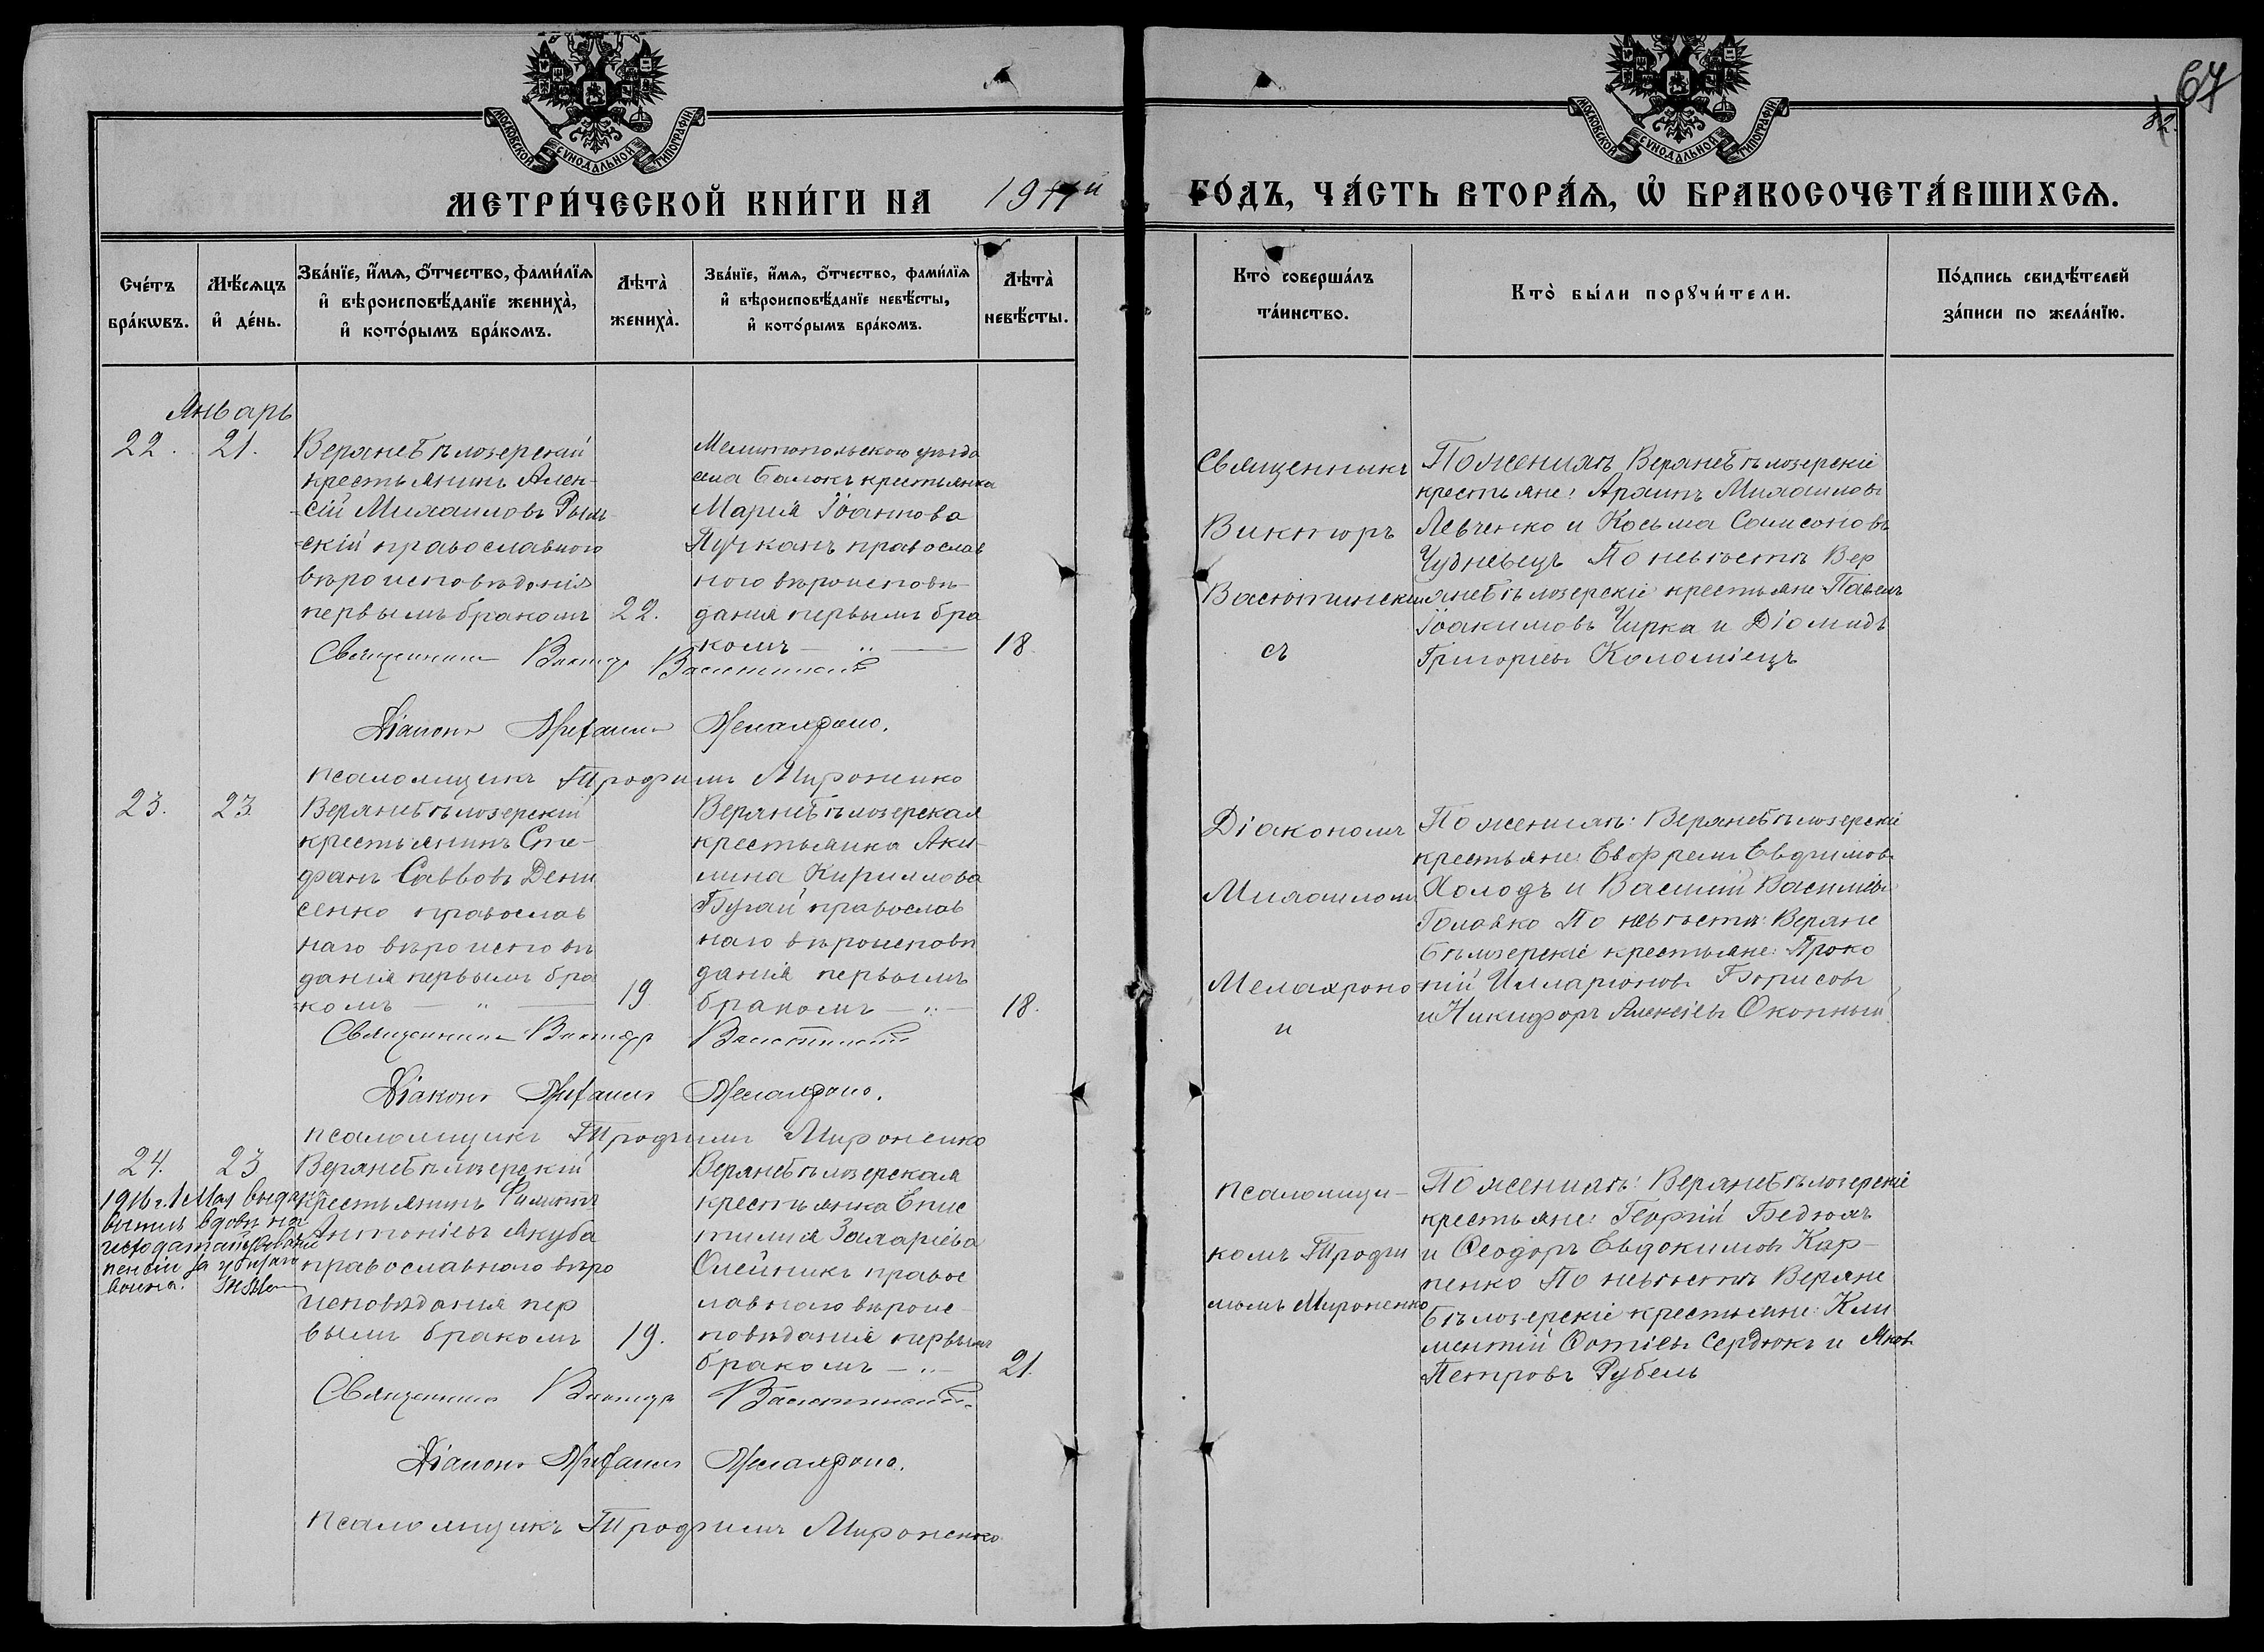 67
82.
МОСКОВСКОЙ СѴНОДАЛЬНОЙ ТИПОГРАФІИ
МОСКОВСКОЙ СѴНОДАЛЬНОЙ ТИПОГРАФІИ
МЕТРИ́ЧЕСКОЙ КНИ́ГИ НА 1911й ГО́ДЪ, ЧА́СТЬ ВТОРА́Ѧ, Ѽ БРАКОСОЧЕТА́ВШИХСѦ.
Сче́тъ бра́кѡвъ.
Мѣ́сѧцъ и҆ де́нь.
Зва́нїе, и҆́мѧ, ѻ҆́тчество, фами́лїѧ
и҆ вѣроисповѣ́данїе жениха̀,
и҆ кото́рымъ бра́комъ.
Лѣта̀ жениха̀.
Зва́нїе, и҆́мѧ, ѻ҆́тчество, фами́лїѧ
и҆ вѣроисповѣ́данїе невѣ́сты,
и҆ кото́рымъ бра́комъ.
Лѣта̀ невѣ́сты.
Кто̀ соверша́лъ та́инство.
Кто̀ бы́ли порꙋчи́тели.
По́дпись свидѣ́телей
за́писи по жела́нїю.
Январь
22. 21.
Верхнебѣлозерскій
крестьянинъ Алек-
-сій Михаиловъ Рым-
-скій православного
вѣроисповѣданія
первымъ бракомъ 22.
Мелитопольскою уѣзда
села Балокъ крестьянка
Марія Іоаннова
Пучканъ православ
ного вѣроисповѣ-
данія первымъ бра
комъ — " — 18
Священникъ
Викторъ
Васютинскій
съ
По женихѣ Верхнебѣлозерскіе
крестьяне: Архипъ Михаиловъ
Левченко и Косьма Самсоновъ
Чудневецъ По невѣстѣ Вер
хнебѣлозерскіе крестьяне Павелъ
Іоакимовъ Чирка и Діомидъ
Григорьев Коломіецъ
Священникъ Викторъ Васютинскій
Діаконъ Михаилъ Мелахроно.
Псаломщикъ Трофимъ Мироненко
23. 23
Верхнебѣлозерскій
крестьянинъ Сте-
фанъ Саввовъ Дени
сенко православ
наго вѣроисповѣ
данія первымъ бра
комъ — " — 19
Верхнебѣлозерская
крестьянка Аки-
лина Кириллова
Бугай православ
наго вѣроисповѣ
данія первымъ
бракомъ — " — 18.
Діакономъ
Михаиломъ
Мелахроно
и
По женихѣ: Верхнебѣлозерскіе
крестьяне: Евфремъ Евфимовъ
Холодъ и Василій Васильевъ
Головко По невѣстѣ: Верхне
бѣлозерскіе крестьяне: Проко
пій Илларіоновъ Борисовъ
и Никифоръ Алексіевъ Окопный
Священникъ Викторъ Васютинскій
Діаконъ Михаилъ Мелахроно.
Псаломщикъ Трофимъ Мироненко
24. 23
1916 г. 1 Мая выдана
выпись вдовѣ на
исходатайствованіе
пенсіи за убитаго
воина.
Верхнебѣлозерскій
крестьянинъ Филиппъ
Антоніевъ Якуба
православного вѣро
исповѣданія пер
вымъ бракомъ 19.
Верхнебѣлозерская
крестьянка Епис
тимія Захаріева
Олейникъ правос
лавного вѣроис-
повѣданія первымъ
бракомъ — " — 21.
Псаломщи-
комъ Трофи
момъ Мироненко
По женихѣ: Верхнебѣлозерскіе
крестьяне: Георгій Бедюхъ
и Ѳеодоръ Евдокимовъ Кар-
пенко По невѣстѣ Верхне
бѣлозерскіе крестьяне: Кли
ментій Фотіевъ Сердюкъ и Яковъ
Петровъ Рубель
Священникъ Викторъ Васютинскій
Діаконъ Михаилъ Мелахроно.
Псаломщикъ Трофимъ Мироненко